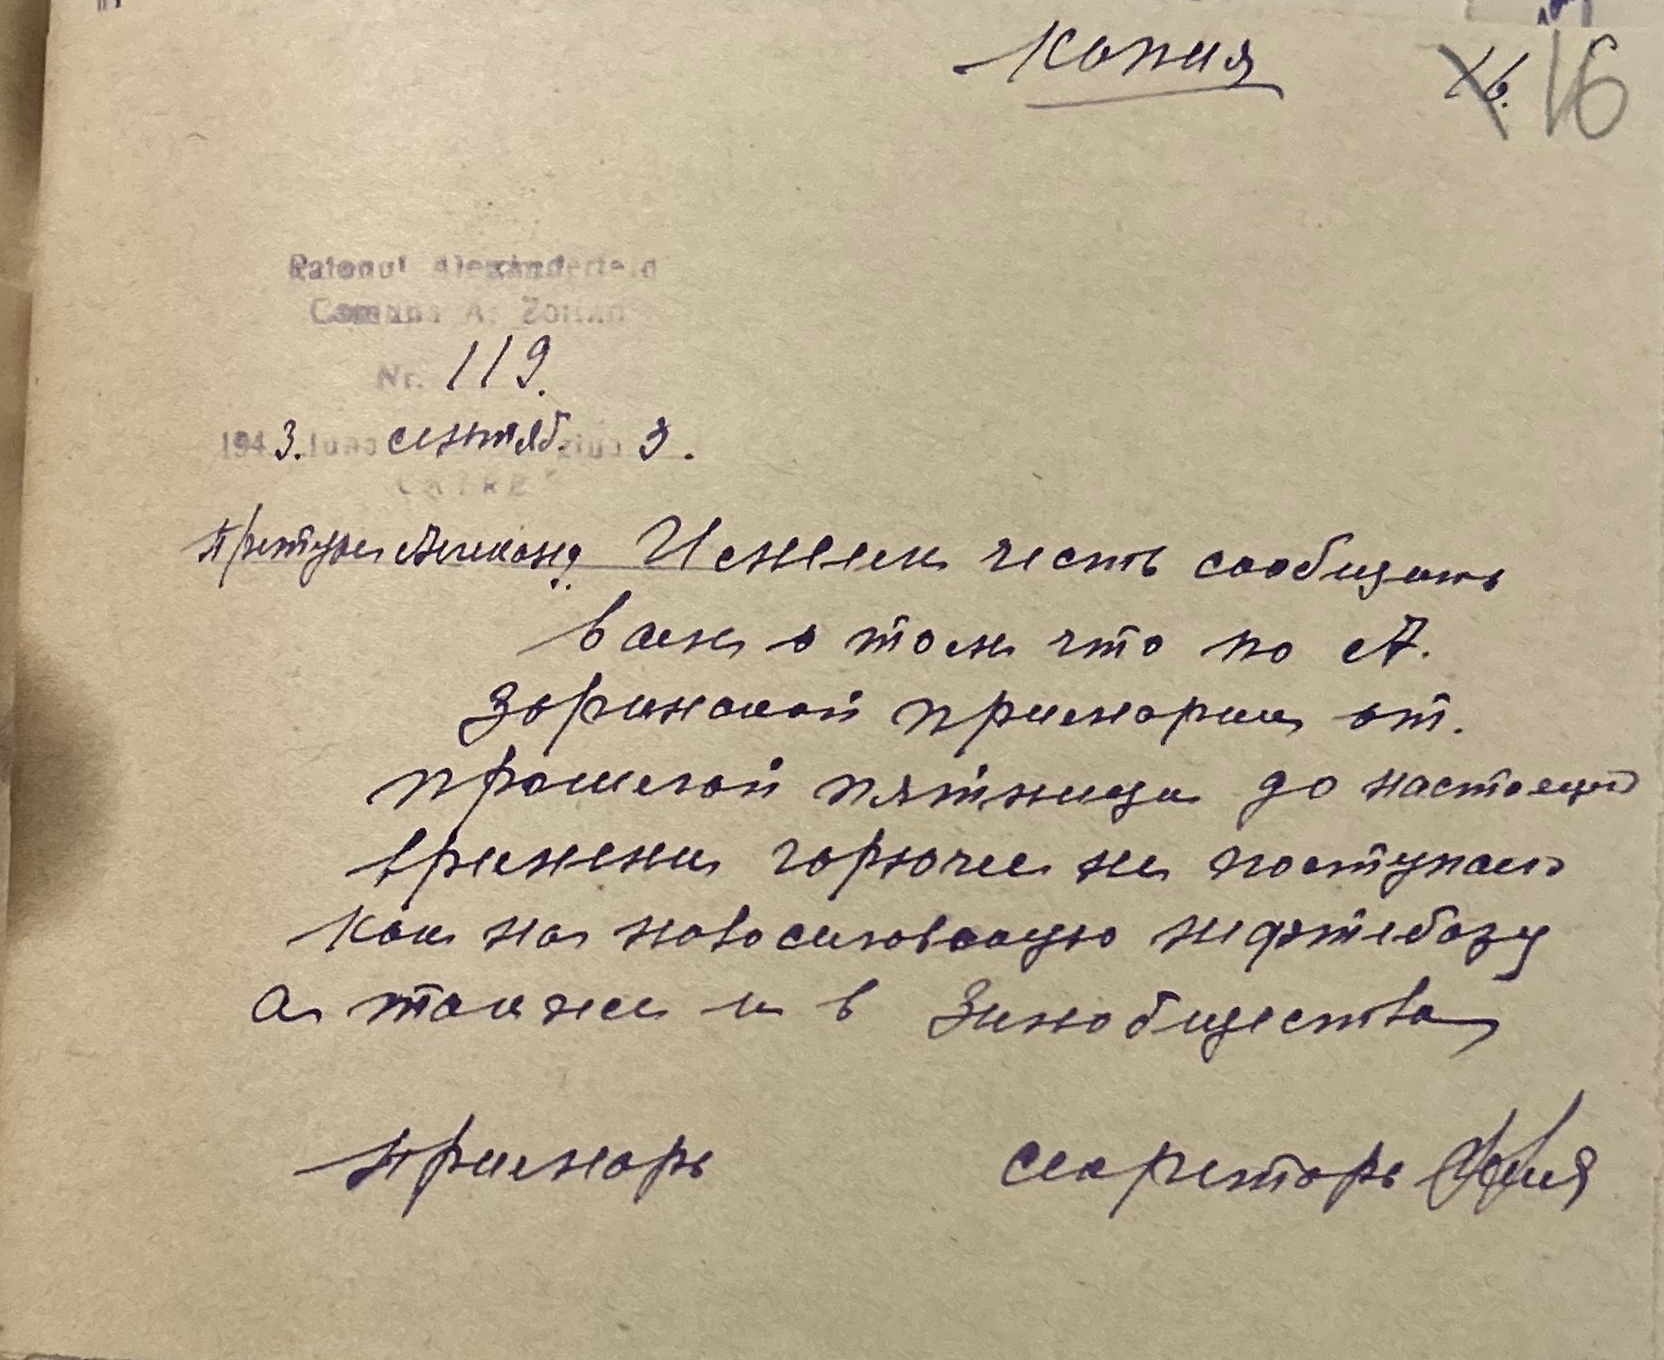 Копия
16. 16
Raionul Alexanderfeld
Comuna A. Zorian
Nr. 119.
1943. luna сентяб. ziua 3.
CATRE
Претуре Александ. Имеем честь сообщить
вам о том что по А.
Зоринской примарии от.
прошлой пятници до настоящо
времени горючее не поступало
как на новоселовскую нефтебазу
а также и в Зинобщества
Примарь секретарь